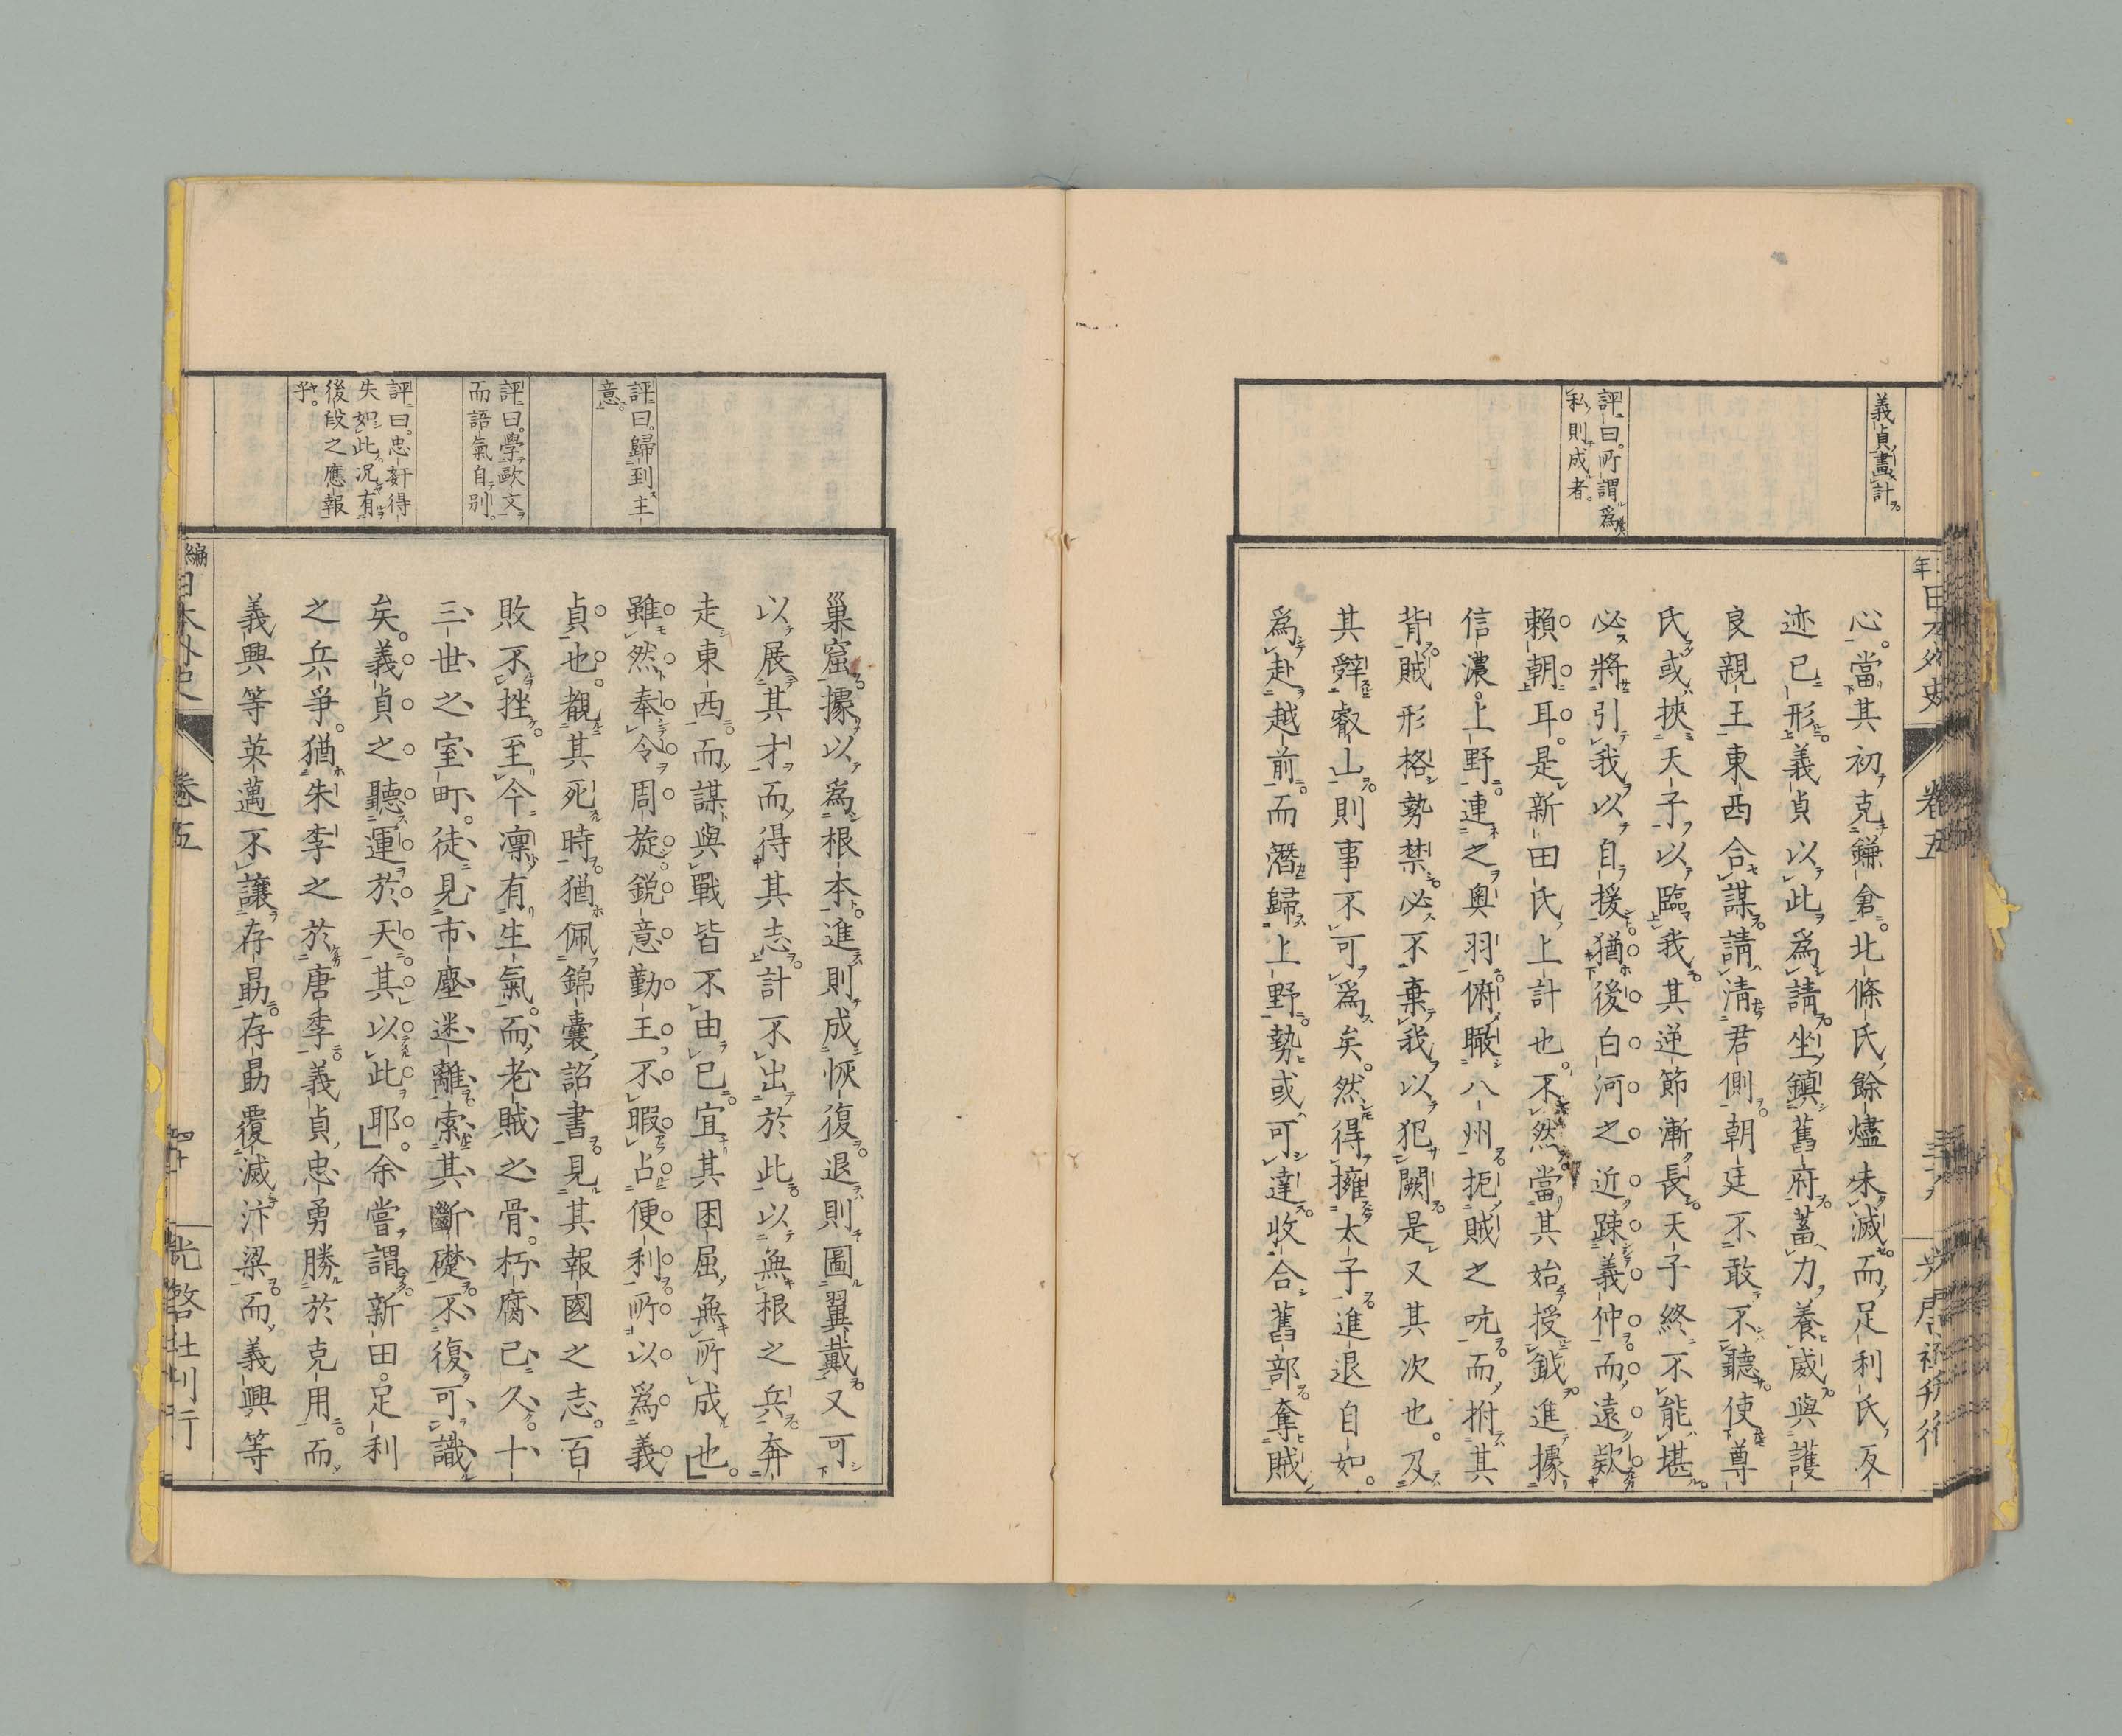 義貞畫計
評曰所謂爲
私則成者
心。當其初克鎌倉。北條氏餘燼未滅而足利氏反
迹已形義貞以此爲請坐鎮舊府蓄力養威與護
良親王東西合謀請清君側朝廷不敢不聽使尊
氏或挾天子以臨我其逆節漸長天子終不能堪
必將引我以自援猶後白河之近踈義仲而遠欵
賴朝耳。是新田氏上計也。不然當其始授鉞進據
信濃上野連之奧羽俯瞰八州扼賊之吭而拊其
背賊形格勢禁必不棄我以犯闕是又其次也。及
其辭叡山則事不可爲矣。然得擁太子進退自如。
爲赴越前而潛歸上野勢或可達收合舊部奪賊
評曰。歸到主
意
評曰。學歐文
而語氣自別。
評曰。忠奸得
失如此況有
後段之應報
乎。
巢窟據以爲根本進則成恢復退則圖翼戴又可
以展其才而得其志計不出於此以無根之兵奔
走東西而謀與戰皆不由已宜其困屈無所成也。
雖然奉令周旋鋭意勤王不暇占便利所以爲義
貞也。觀其死時猶佩錦囊詔書見其報國之志。百
敗不挫至今凛有生氣。而老賊之骨。朽腐已久。十
三世之室町。徒見市塵迷離索其斷礎不復可識
矣。義貞之聽運於天其以此耶。余嘗謂新田足利
之兵爭。猶朱李之於唐季義貞忠勇勝於克用而
義興等英邁不讓存勗存勗覆滅汴梁而義興等
編
日本外史
卷五
四十
光啓社刊行
年
日本外史
卷五